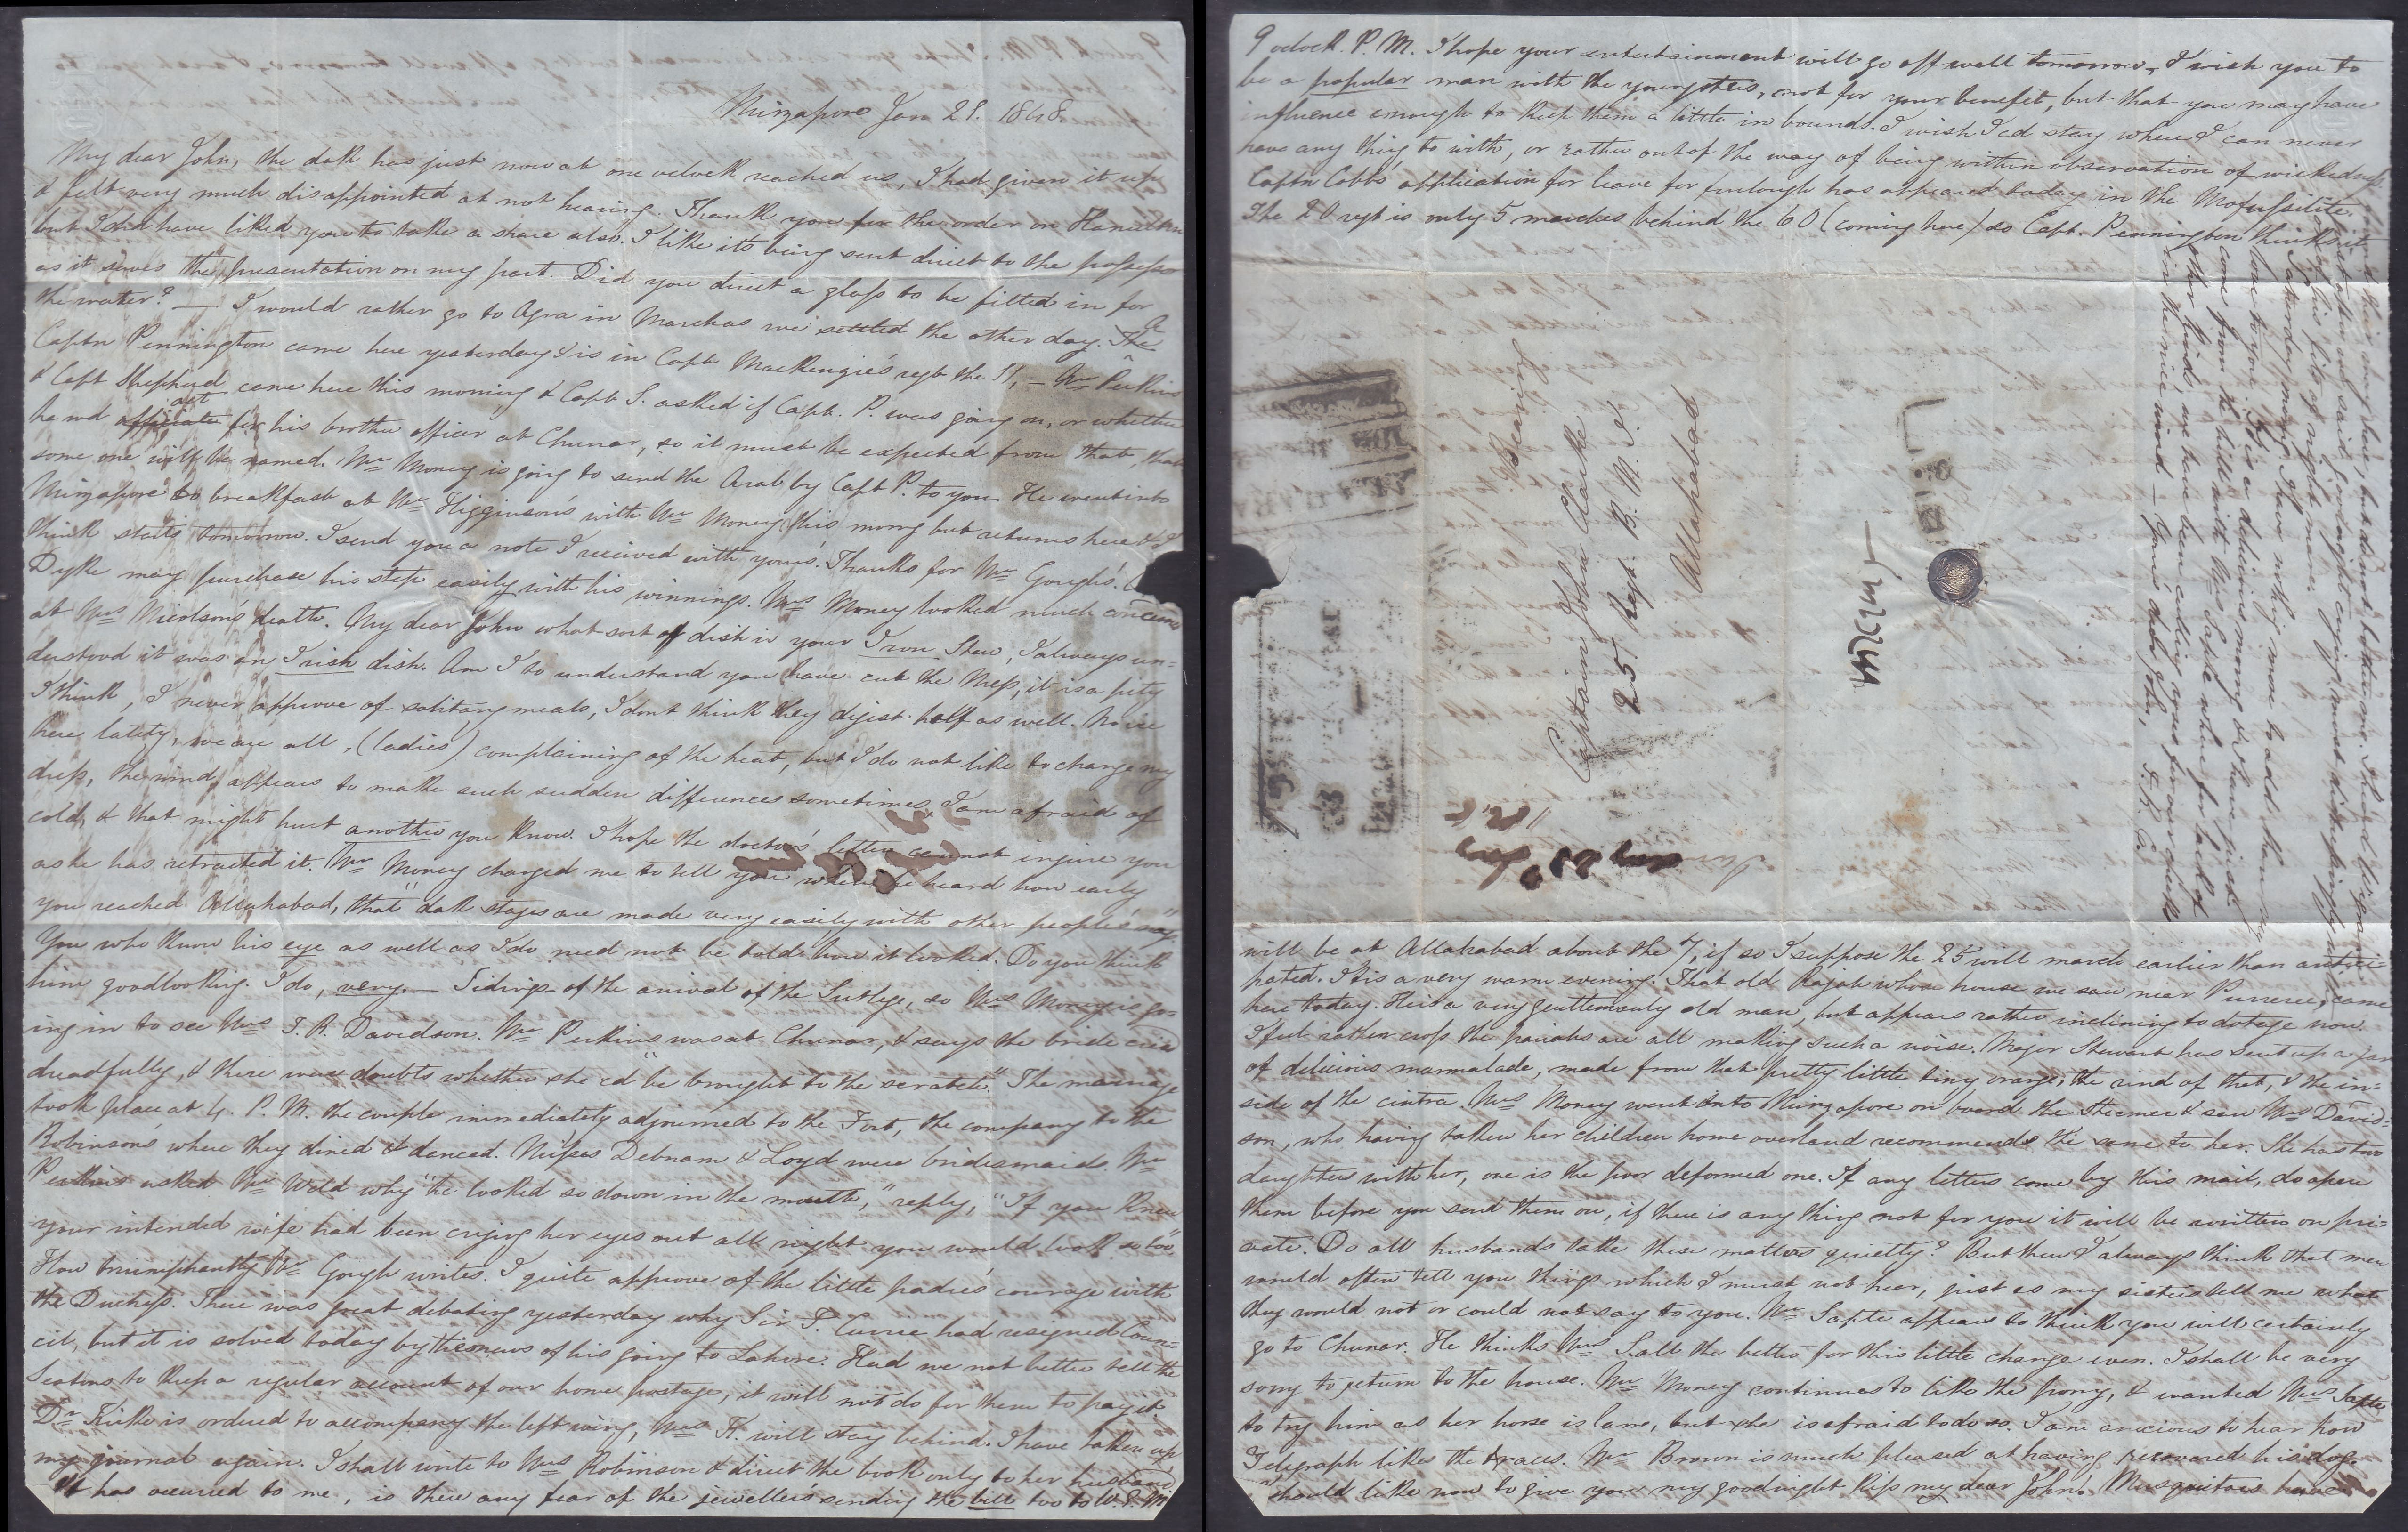 Mirzapore Jan 28. 1848
My dear John, the dak has just now at one oclock reached us, I had given it up
& felt very much disappointed at not hearing. Thank you for the order on Hamilton
but I shd have liked you to take a share also. I like its being sent direct to the professor
as it saves the presentation on my part. Did you direct a glass to be fitted in for
the water? — I would rather go to Agra in March as we settled the other day. The
Captn Pennington came here yesterday & is in Capt Mackenzie's regt the — Mr Perkins
& Capt Shepherd came here this morning & Capt S. asked if Capt. P. was going on, or whether
he wd officiate act for his brother officer at Chunar, so it must be expected from that, that
some one will be named. Mr Money is going to send the Arab by Capt P. to you. He went into
Mirzapore to breakfast at Mr Higginson's with Mr Money this morng but returns here & I
think starts tomorrow. I send you a note I received with yours. Thanks for Mr Gough's.
Dyke may purchase his step easily with his winnings. Mrs Money looked much concerned
at Mrs Nicolson's death. My dear John what sort of dish is your Iron Stew, I always un=
derstood it was an Irish dish. Am I to understand you have cut the Mess, it is a pity
I think, I never approve of solitary meals, I dont think they digest half as well. No ice
here lately, we are all, (ladies) complaining of the heat, but I do not like to change my
dress, the wind appears to make such sudden differences sometimes, I am afraid of
cold, & that might hurt another you know. I hope the doctor's letter cannot injure you
as he has retracted it. Mr Money charged me to tell you when he heard how early
you reached Allahabad, that "dak stages are made very easily with other people's nags"
You who know his eye as well as I do need not be told how it looked. Do you think
him goodlooking. I do, very. — Tidings of the arrival of the Sutlej, so Mrs Money is go=
ing in to see Mrs T. R. Davidson. Mr Perkins was at Chunar, & says the bride cried
dreadfully, & there were doubts whether she cd "be brought to the scratch". The marriage
took place at 4. P. M. the couple immediately adjourned to the Fort, the company to the
Robinson's where they dined & danced. Misses Debnam & Loyd were bridesmaids. Mr
Perkins asked Mr Wild why "he looked so down in the mouth," reply, "If you knew
your intended wife had been crying her eyes out all night you would look so too"
How triumphantly Mr Gough writes. I quite approve of the little padre's courage with
the Duchess. There was great debating yesterday why Sir F. Currie had resigned Coun=
cil, but it is solved today by the news of his going to Lahore. Had we not better tell the
Seatons to keep a regular account of our home postage, it will not do for them to pay it.
Dr Kirke is ordered to accompany the left wing, Mrs K. will stay behind. I have taken up
my journal again. I shall write to Mrs Robinson & direct the book only to her husband
It has occurred to me, is there any fear of the jeweller's sending the bill too to
9 oclock. P. M. I hope your entertainment will go off well tomorrow, I wish you to
be a popular man with the youngsters, not for your benefit, but that you may have
influence enough to keep them a little in bounds. I wish I cd stay where I can never
have any thing to with, or rather out of the way of being within observation of wickedness
Captn Cobb's application for leave for furlough has appeared today in the Mofussilite.
The 20 regt is only 5 marches behind the 60 (coming here) so Capt. Pennington thinks it
Bearing
Captain John Clarke
25 Regt. B. N. I.
Allahabad
will be at Allahabad about the 7, if so I suppose the 25 will march earlier than antici=
pated. It is a very warm evening. That old Rajah whose house we saw near Purneree, came
here today. He is a very gentlemanly old man, but appears rather inclining to dotage now.
I feel rather cross the pariahs are all making such a noise. Major Stewart has sent up a jar
of delicious marmalade, made from that pretty little tiny orange, the rind of that, & the in=
side of the cintra. Mrs Money went into Mirzapore on board the steamer & saw Mrs David=
son, who having taken her children home overland recommends the same to her. She has two
daughters with her, one is the poor deformed one. If any letters come by this mail, do open
them before you send them on, if there is any thing not for you it will be written on pri=
vate. Do all husbands take these matters quietly? But then I always think that men
would often tell you things which I must not hear, just as my sisters tell me what
they would not or could not say to you. Mr Sapte appears to think you will certainly
go to Chunar. He thinks Mrs S. all the better for this little change even. I shall be very
sorry to return to the house. Mr Money continues to like the pony, & wanted Mrs Sapte
to try him as her horse is lame, but she is afraid to do so. I am anxious to hear how
Telegraph likes the traces. Mr Brown is much pleased at having recovered his dog.
I should like now to give you my goodnight kiss my dear John. Musquitoes have
found their way here, but do not bother me.
of his fits of night mare.
Saturday morng. I have nothing more to add than my
love to you. It is a delicious morng & I have just
come from the hill with Mrs Sapte where for lack of
other birds, we have been calling yours for our ducks
in the nice wind — Yours dule John,